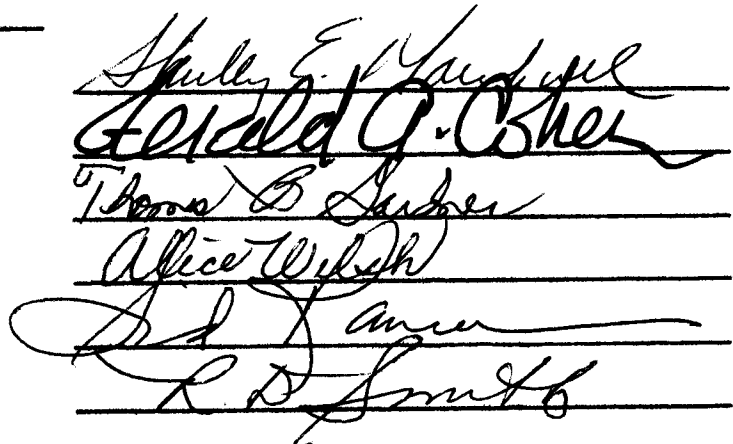 Shirley E.
Gerald A. Cohen
Thomas B Gardner
Alice Welsh
R B Smith